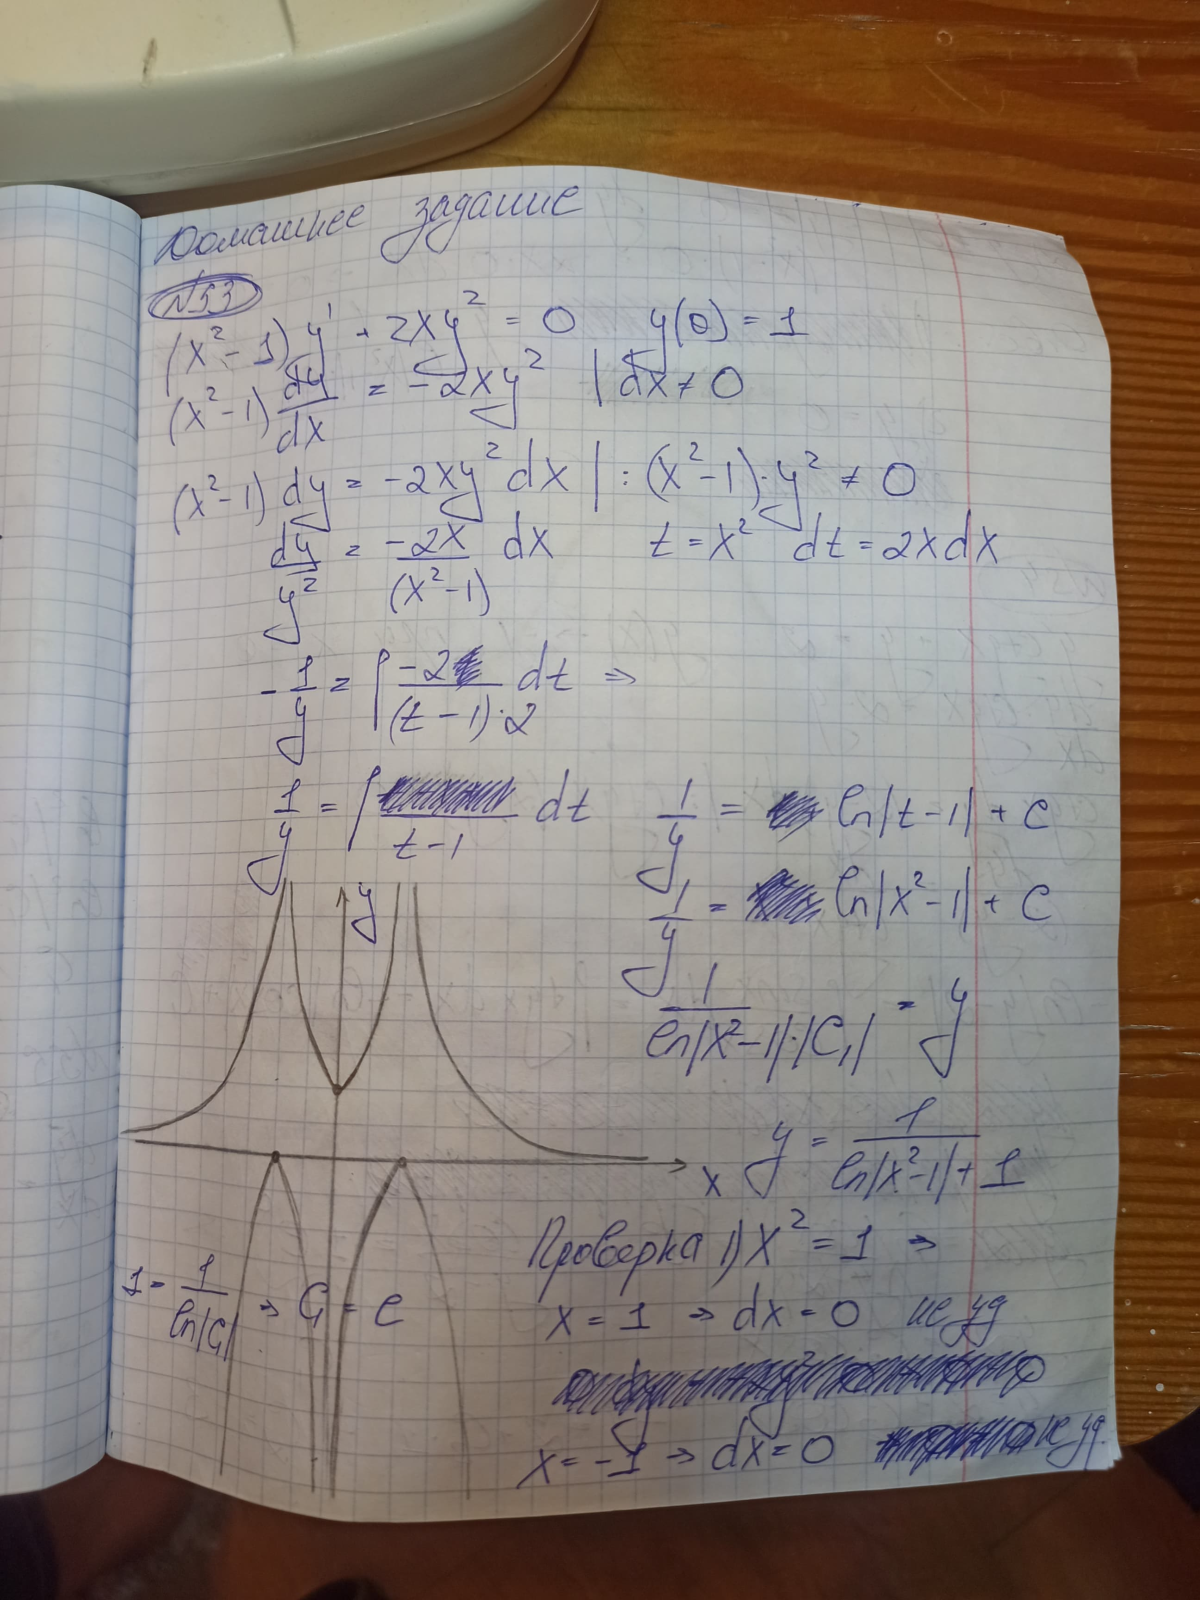 Домашнее задание
N53
(x² - 1) y' + 2xy² = 0 y(0) = 1
(x² - 1) dy/dx = -2xy² | dx ≠ 0
(x² - 1) dy = -2xy² dx | : (x² - 1) · y² ≠ 0
dy/y² = -2x/(x² - 1) dx t = x² dt = 2xdx
-1/y = ∫ -2/((t - 1) · 2) dt ⇒
1/y = ∫ /(t - 1) dt 1/y = ln|t - 1| + C
1/y = ln|x² - 1| + C
y
1/(ln|x² - 1| · |C₁|) = y
x
y = 1/(ln|x² - 1| + 1)
Проверка 1) x² = 1 ⇒
1 = 1/ln|C₁| ⇒ C₁ = e
x = 1 ⇒ dx = 0 не уд
x = -1 ⇒ dx = 0 не уд.